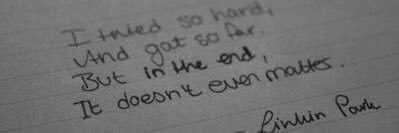 I tried so hard,
And got so far.
But in the end,
It doesn't even matter.
Linkin Park